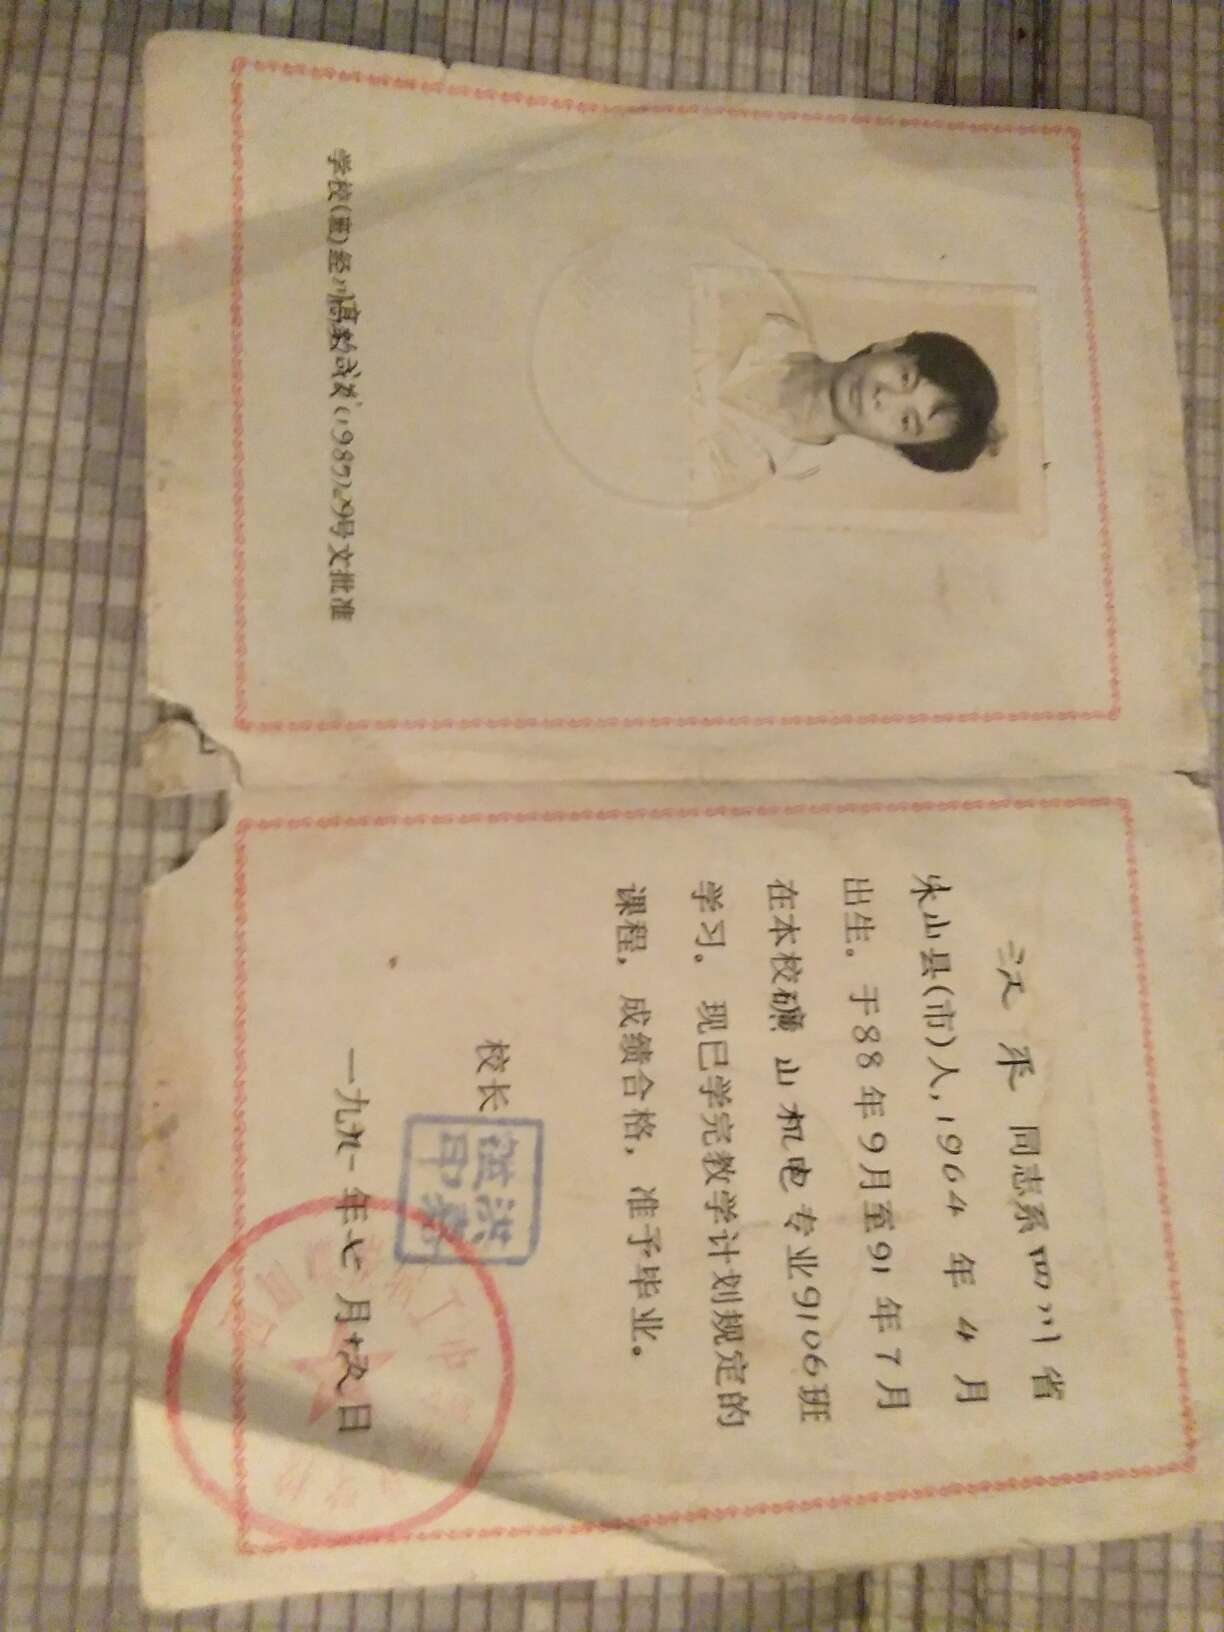 学校(班)经川高教成发(1987)029号文批准
同志系四川省
山县(市)人,1964年4月
出生。于88年9月至91年7月
在本校礦山机电专业9106班
学习。现已学完教学计划规定的
课程,成绩合格,准予毕业。
校长
一九九一年七月十九日